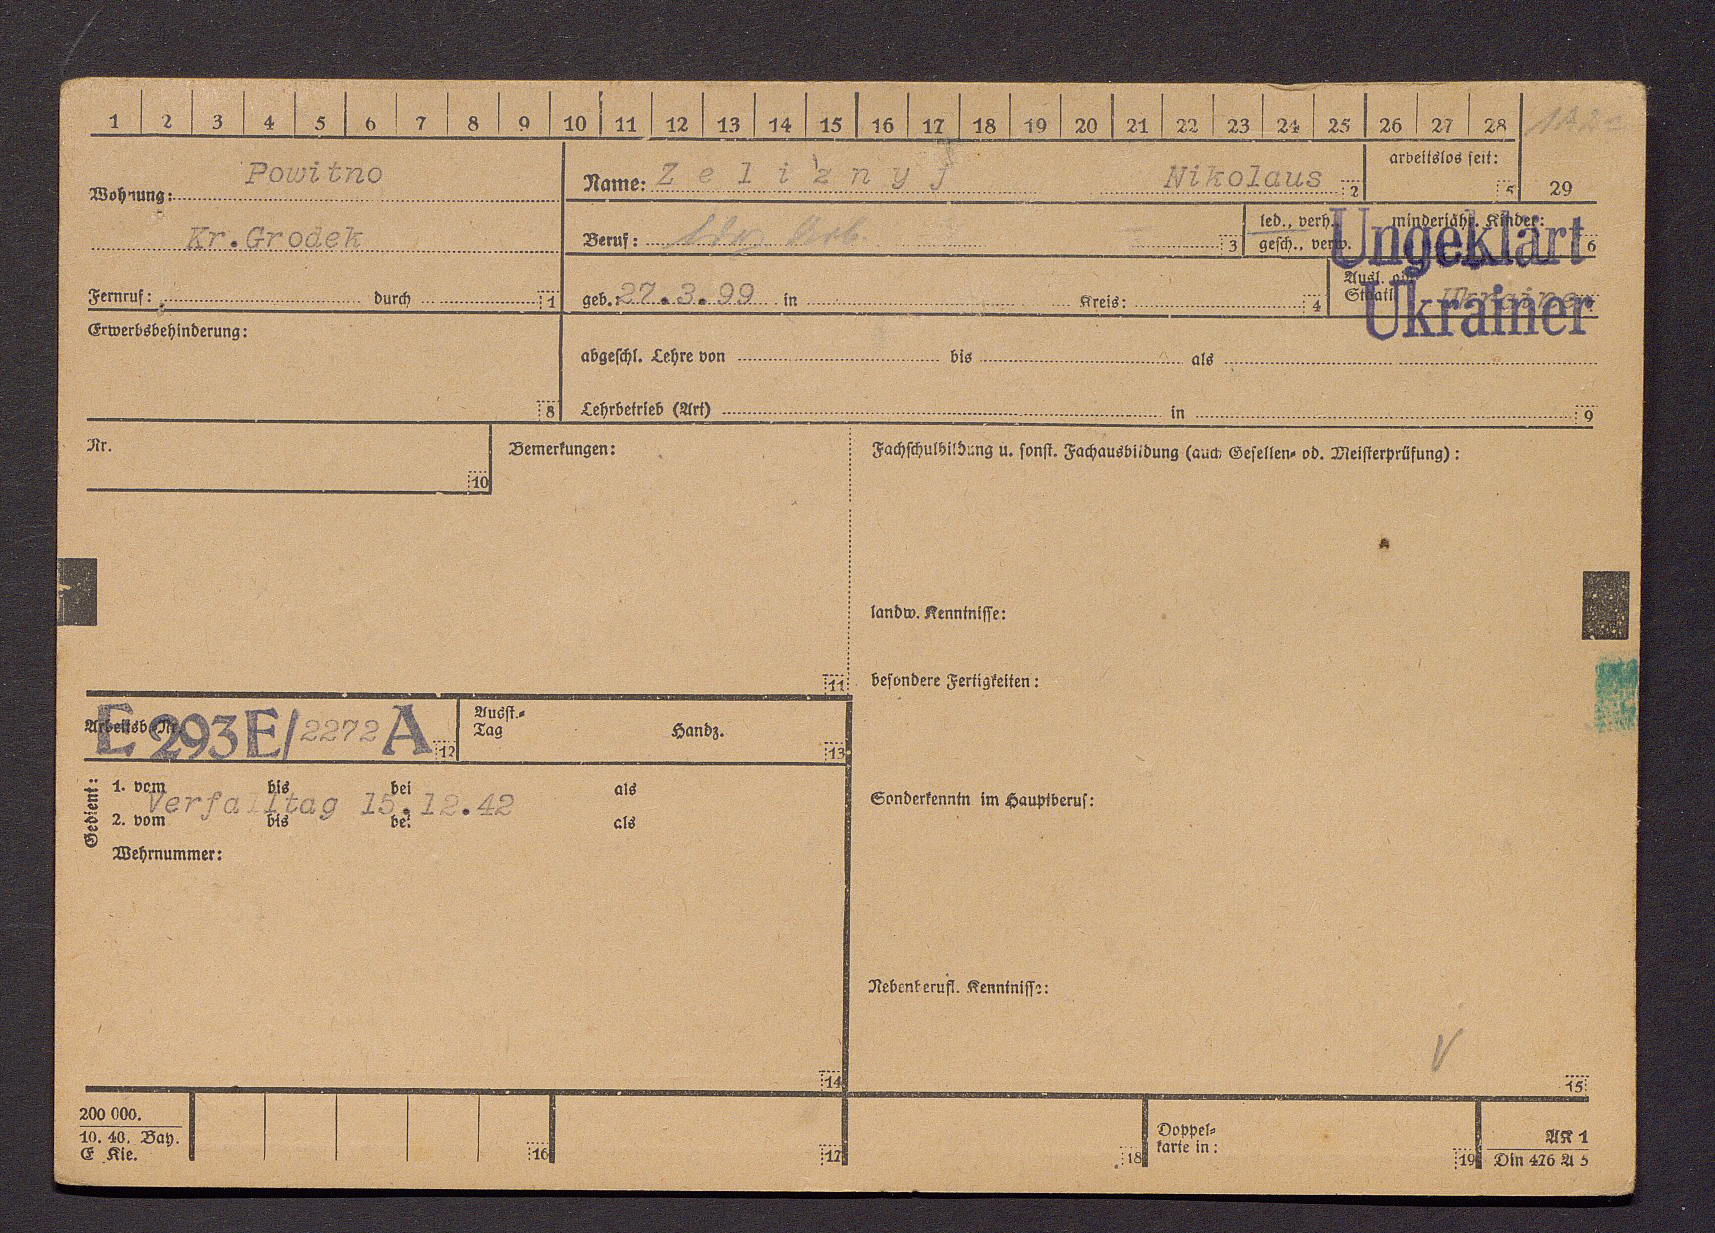 1 2 3 4 5 6 7 8 9 10 11 12 13 14 15 16 17 18 19 20 21 22 23 24 25 26 27 28
Wohnung: Powitno
Kr.Grodek
Fernruf: durch 1
Name: Zeliznyj Nikolaus 2
arbeitslos seit: 5
29
Beruf: Arb. 3
led., verh.
gesch., verw.
minderjähr. Kinder: 6
Ungeklärt
geb.: 27.3.99 in Kreis: 4
Ausl.
Staatl. Ukraine
Ukrainer
Erwerbsbehinderung:
8
abgeschl. Lehre von bis als
Lehrbetrieb (Art) in 9
Nr.
10
Bemerkungen:
11
Fachschulbildung u. sonst. Fachausbildung (auch Gesellen- od. Meisterprüfung):
landw. Kenntnisse:
besondere Fertigkeiten:
Sonderkenntn im Hauptberuf:
Nebenberufl. Kenntnisse:
V
15
Arbeitsb.-Nr.
E 293E/2272A 12
Ausst.-
Tag Handz. 13
Gedient:
1. vom bis bei als
Verfalltag 15.12.42
2. vom bis bei als
Wehrnummer:
14
200 000.
10. 40. Bay.
E Kie.
16
17
18
Doppel-
karte in:
19
AK 1
Din 476 A 5